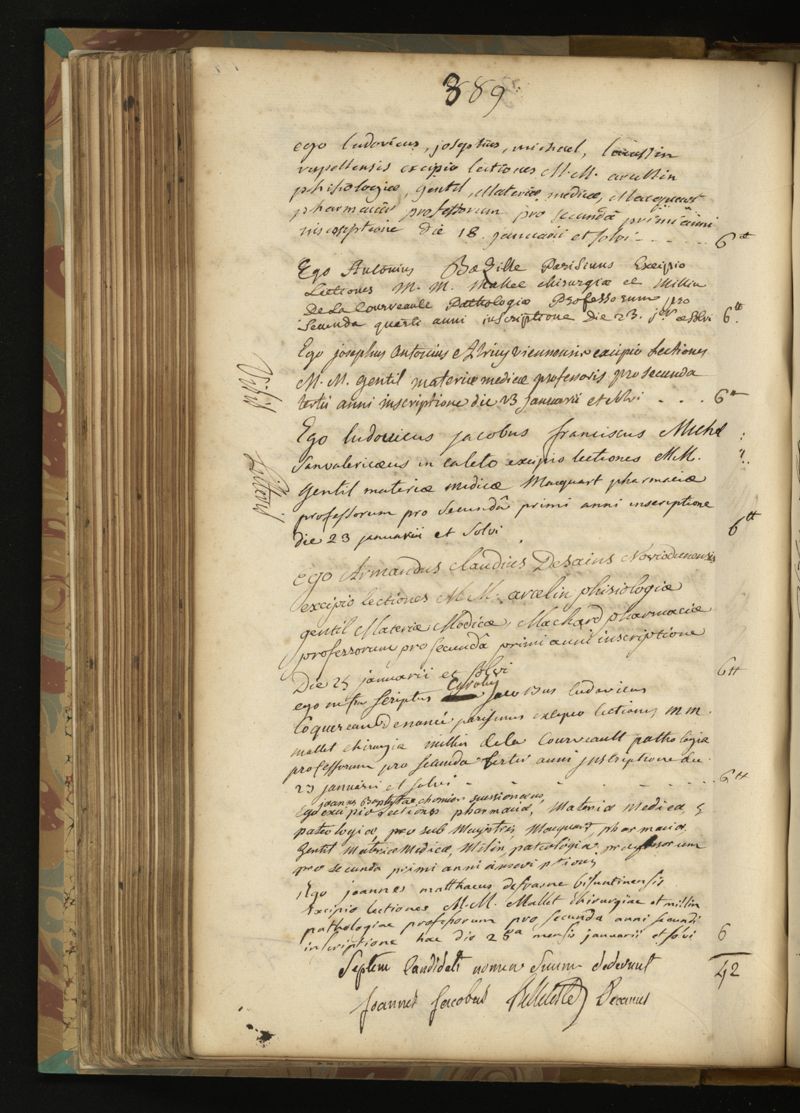 889
ego ludovicus, josephus, michael,
rupellensis excipio lectiones M.M. arcelin
phisiologiæ, gentil, Materiæ medicæ, Macquart
pharmaciæ professorum pro secundâ primi anni
inscriptione die 18. januarii et solvi - - - - 6 tt
Ego Antonius Bazille Parisinus Excipio
Lectiones M. M. Mallet chirurgiæ et Millin
De La Courveault Pathologiæ Professorum pro
Secunda quarti anni inscriptione Die 23. et solvi 6 tt
Ego josephus Antonius viennensis excipio Lectiones
M. M. gentil materiæ medicæ professoris pro secunda
tertii anni inscriptione die 23 januarii et solvi . . . 6 tt
Ego ludovicus jacobus franciscus Michel
Sanvalericæus in caleto excipio lectiones M.M.
gentil materiæ medicæ Macquart pharmaciæ
professorum pro secundâ primi anni inscriptione
die 23 januarii et solvi 6 tt
ego Armandus claudius Desains Noviodunensis
excipio lectiones M.M. arcelin phisiologiæ
gentil Materiæ Medicæ, Machard pharmaciæ
professorum pro secundâ primi anni inscriptione
Die 23 januarii et solvi 6 tt
ego infra scriptus Carolus jacobus ludovicus
Coquereau parisinus excipio lectiones m.m.
mallet chirurgiæ millin de la Courveault pathologiæ
professorum pro secunda tertii anni inscriptione die
23 januarii et solvi - - - 6 tt
joannes Baptista suessionæus
Ego excipio Lectiones pharmaciæ, Materiæ Medicæ &
patologiæ, pro sub Magistris, Macquart, pharmaciæ
gentil Materiæ Medicæ, Milin patologiæ, professorum
pro secunda primi anni inscriptione
Ego joannes matthæus defrasne bisuntinensis
Excipio lectiones M.M. Mallet chirurgiæ et millin
pathologiæ professorum pro secunda anni secundi
inscriptione hac die 23a mensis januarii et solvi 6
Septem Candidati nomen suum dederunt 42
Joannes Jacobus Belleteste Decanus